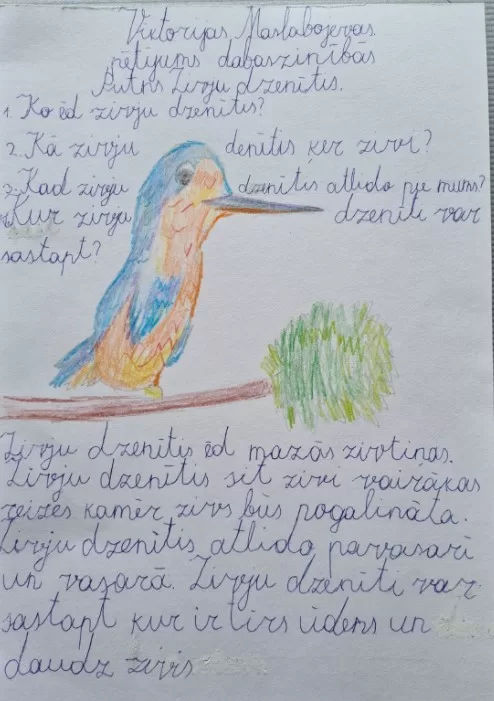 Viktorijas Maslabojevas
pētījums dabaszinībās
Putns Zivju dzenītis.
1. Ko ēd zivju dzenītis?
2. Kā zivju denītis ķer zivi?
3. Kad zivju dzenītis atlido pie mums?
4. Kur zivju dzenīti var
sastapt?
Zivju dzenītis ēd mazās zivtiņas.
Zivju dzenītis sit zivi vairākas
reizes kamēr zivs būs nogalināta.
Zivju dzenītis atlido pavasarī
un vasarā. Zivju dzenīti var
sastapt kur ir tīrs ūdens un
daudz zivis